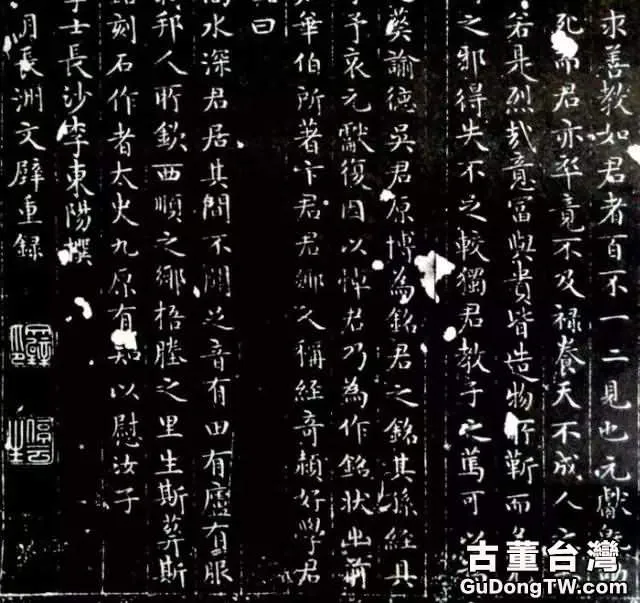 求善教如君者百不一二見也元獻
死而君亦卒竟不及祿養天不成人
若是烈哉意富與貴皆造物所靳而
之邪得失不之較獨君教子之篤可
葵諭德吳君原博為銘君之銘其孫經具
予哀元獻復因以悼君乃為作銘狀出前
華伯所著卞君君鄉人稱經奇穎好學君
曰
水深君居其間不聞足音有田有廬有服
邦人所欽西順之鄉梧塍之里生斯葬斯
刻石作者太史九原有知以慰汝子
士長沙李東陽撰
月長洲文璧重錄
停雲生
古董台灣
GuDongTW.com